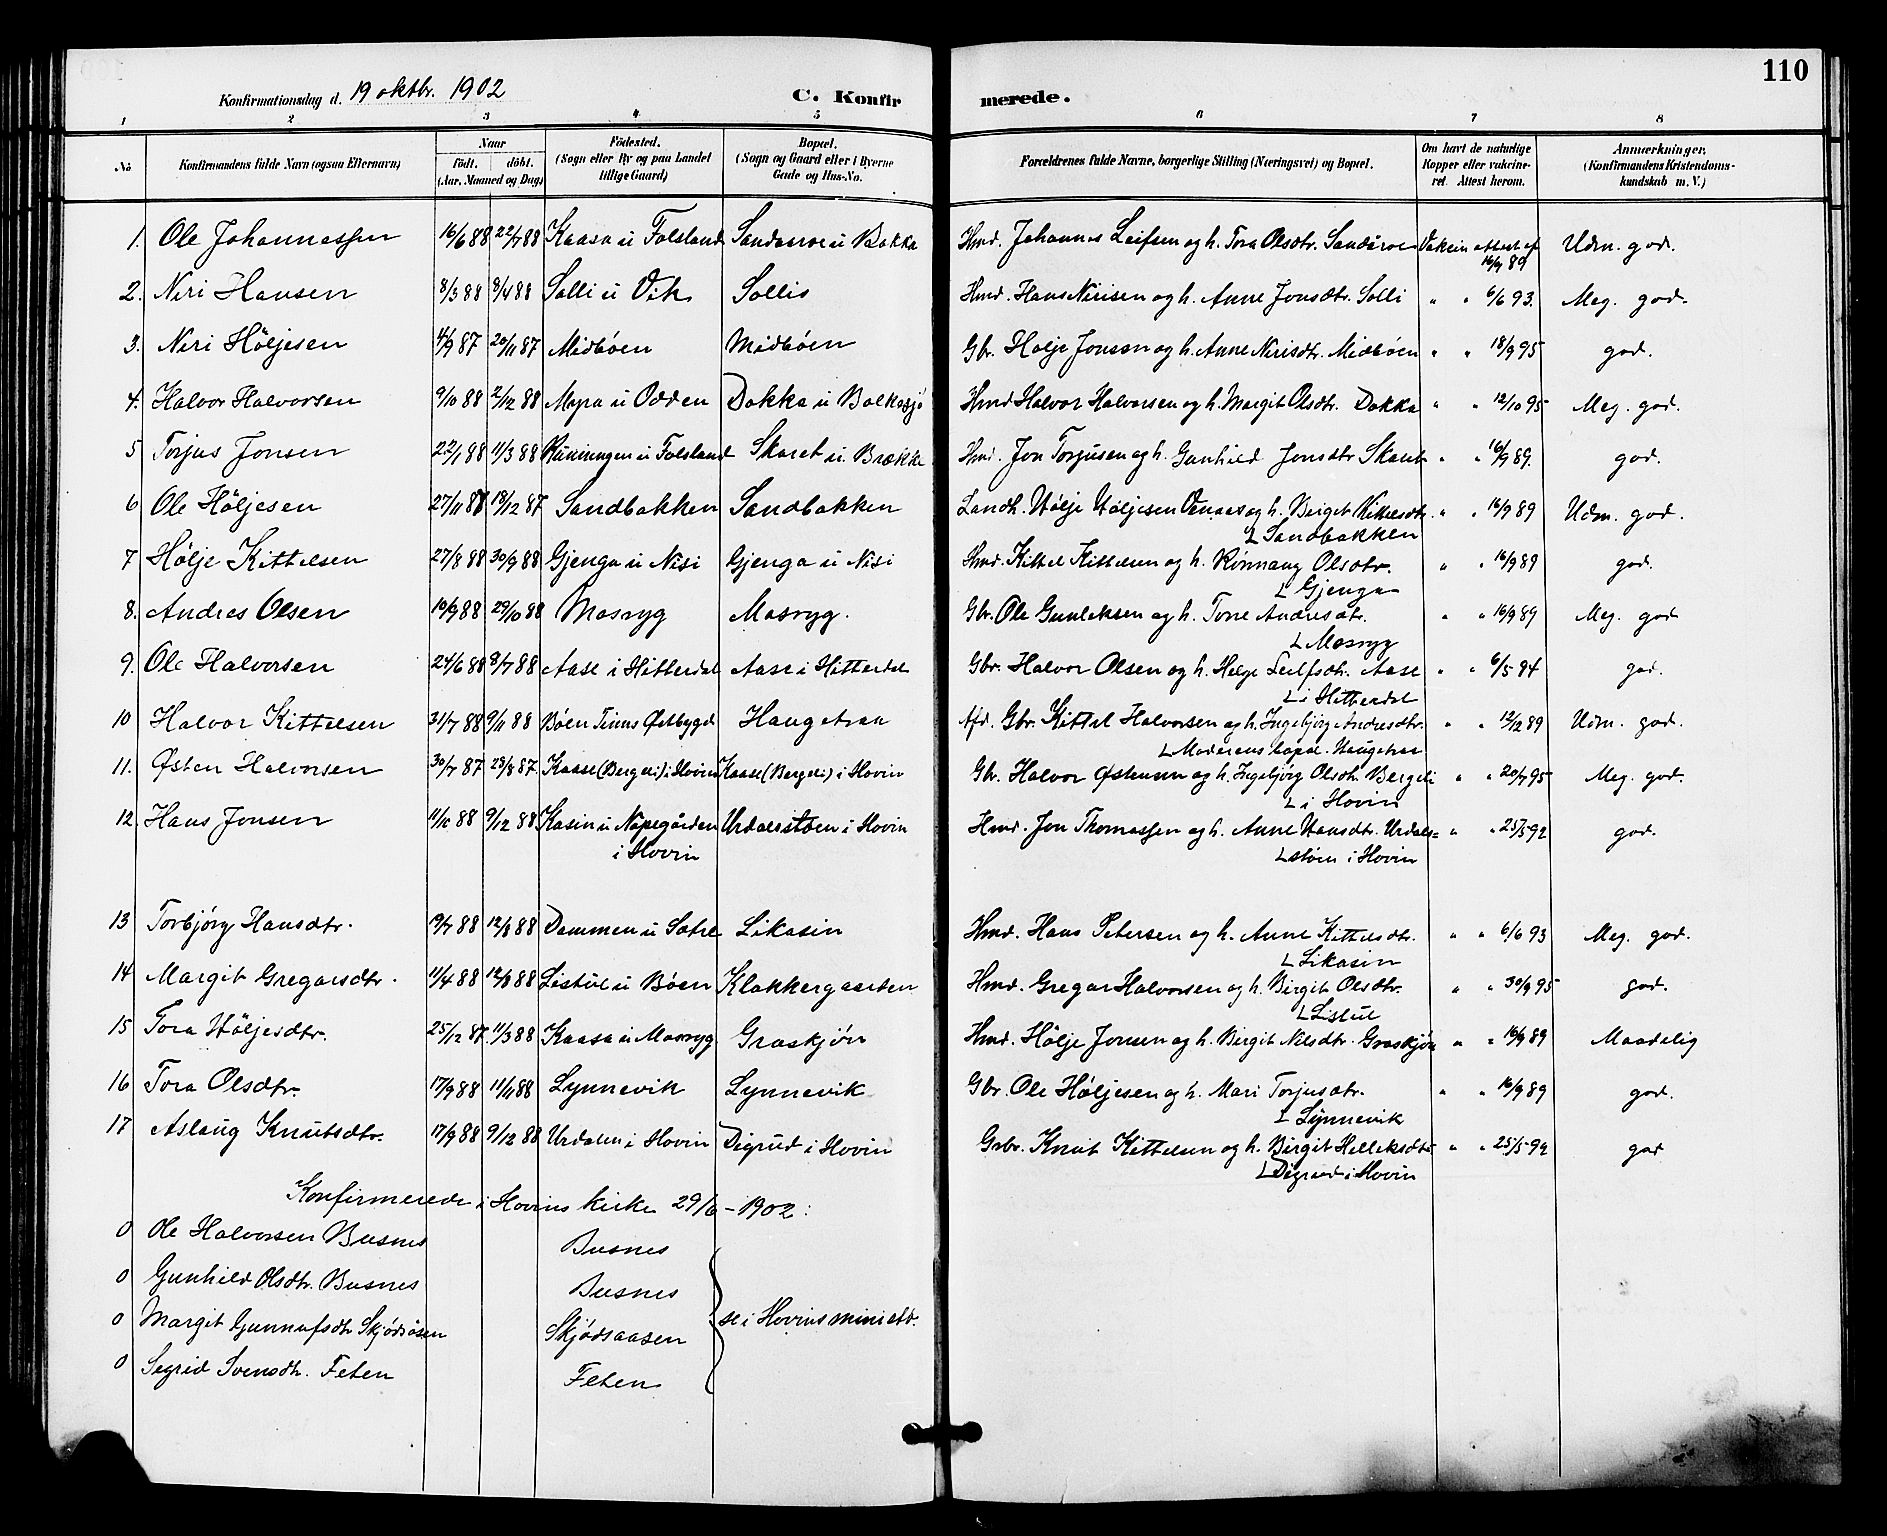 110
Konfirmationsdag d. 19 oktbr. 1902 C. Konfirmerede.
1 2 3 4 5 6 7 8
No. Konfirmandens fulde Navn (ogsaa Efternavn) Naar födt. döbt. (Aar, Maaned og Dag) Födested. (Sogn eller By og paa Landet tillige Gaard) Bopæl. (Sogn og Gaard eller i Byerne Gade og Hus-No. Forældrenes fulde Navne, borgerlige Stilling (Næringsvei) og Bopæl. Om havt de naturlige Kopper eller vakcineret. Attest herom. Anmærkninger. (Konfirmandens Kristendomskundskab m. V.)
1. Ole Johannessen 16/6 88 22/7 88 Kaasa u Folsland Sandaaroe u Bakka Hmd. Johannes Leifsen og h. Tora Olsdtr. Sandaaroe Vaksin attest af 16/9 89 Udm. god.
2. Neri Hansen 8/3 88 8/4 88 Solli u Vik Sollis Hmd. Hans Nirisen og h. Anne Jonsdtr. Solli " " 6/6 93. Meg. god.
3. Neri Höljesen 4/9 87 20/11 87 Midböen Midböen Gbr. Holje Jonsen og h. Anne Nerisdtr. Midböen " " 18/9 95 god.
4. Halvor Halvorsen 9/10 88 2/12 88 Myra u Odden Dokka u Bolkesjö Hmd Halvor Halvorsen og h. Margit Olsdtr. Dokka " " 12/10 95 Meg. god.
5 Torjus Jonsen 22/1 88 11/3 88 Runningen u Folsland Skaret u. Brække Hmd. Jon Torjusen og h. Gunhild Jonsdtr Skaret " " 16/9 89. god.
6 Ole Höljesen 27/11 87 18/12 87 Sandbakken Sandbakken Landh. Hölje Höljesen og h. Birget Kittelsdtr. " " 16/9 89 Udm. god.
L Sandbakken
7 Hölje Kittelsen 27/8 88 30/9 88 Gjenga u Nisi Gjenga u Nisi Hmd. Kittel Kittelsen og h. Rönnaug Olsdtr. " " 16/9 89 god.
L Gjenga
8. Andres Olsen 10/9 88 29/10 88 Mosryg Mosryg. Gbr. Ole Gunleksen og h. Tone Andresdtr. " " 16/9 89 Meg. god
L Mosryg
9. Ole Halvorsen 24/6 88 8/7 88 Aase i Hitterdal Aase i Hitterdal Gbr. Halvor Olsen og h. Helge Leifsdtr. Aase " " 6/5 94 god.
L i Hitterdal
10 Halvor Kittelsen 31/7 88 9/11 88 Böen Tinns Østbygd Haugetraa Afd. Gbr. Kittel Halvorsen og h. Ingebjörg Andresdtr. " " 12/12 89 Udm. god.
L Moderens bopæl. Haugetraa
11. Østen Halvorsen 30/7 87 28/8 87 Kaase (Bergeli) i Hovin Kaase (Bergeli) i Hovin Gbr. Halvor Østensen og h. Ingebjörg Olsdtr. Bergeli " " 20/7 95 Meg. god.
L i Hovin
12. Hans Jonsen 11/10 88 9/12 88 Kasin u Nöpegården Urdalsstöen i Hovin Hmd. Jon Thomassen og h. Anne Hansdtr. Urdals= " " 25/5 92 god.
i Hovin L stöen i Hovin
13 Torbjörg Hansdtr. 19/7 88 12/8 88 Dammen u Satre Likasin Hmd. Hans Petersen og h. Anne Kittelsdtr. " " 6/6 93 Meg. god.
L Likasin
14 Margit Gregarsdtr. 11/4 88 12/8 88 Listul u Böen Klokkergaarden Hmd. Gregar Halvorsen og h. Birgit Olsdtr. " " 30/9 95 god.
L Listul
15 Tora Höljesdtr. 25/12 87. 11/3 88 Kaasa u Mosryg Graskjön Hmd. Hölje Jonsen og h. Birgit Nilsdtr. Graskjön " " 16/9 89 Maadelig
16 Tora Olsdtr. 17/9 88 11/11 88 Lynnevik Lynnevik Gbr. Ole Höljesen og h. Mari Torjusdtr. " " 16/9 89 god.
L Lynnevik
17 Aslaug Knutsdtr. 17/9 88 9/12 88 Urdalen i Hovin Digrud i Hovin Gbr. Knut Kittelsen og h. Birgit Helleksdtr " " 25/5 92 god
L Digrud i Hovin
Konfirmerede i Hovins kirke 29/6 - 1902:
0 Ole Halvorsen Busnes Busnes
0 Gunhild Olsdtr. Busnes Busnes
0 Margit Gunnufsdtr Skjödsåsen Skjödsaasen se i Hovins ministr.
0 Segrid Svensdtr. Feten Feten